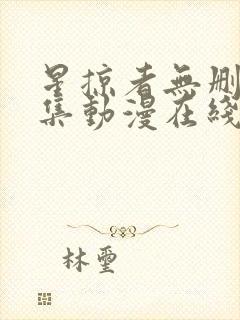 星掠者無刪
集動漫在綫
林璽